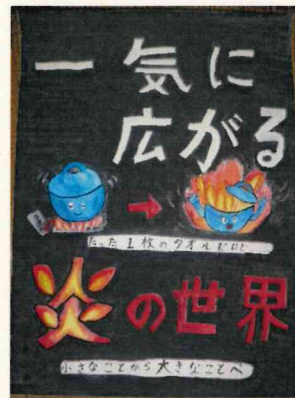 一気に
広がる
たった1枚のタオルなのに
炎の世界
小さなことから大きなことへ